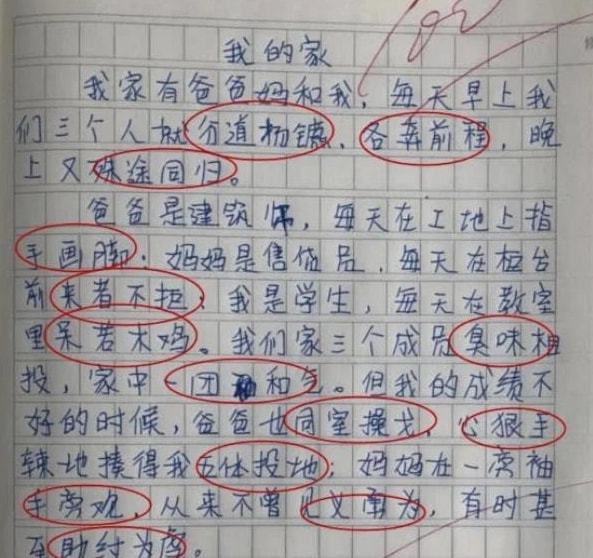 我的家
我家有爸爸妈和我，每天早上我
们三个人就分道扬镳、各奔前程，晚
上又殊途同归。
爸爸是建筑师，每天在工地上指
手画脚；妈妈是售货员，每天在柜台
前来者不拒；我是学生，每天在教室
里呆若木鸡。我们家三个成员臭味相
投，家中一团和气。但我的成绩不
好的时候，爸爸也同室操戈、心狠手
辣地揍得我五体投地；妈妈在一旁袖
手旁观，从来不曾见义勇为，有时甚
至助纣为虐。